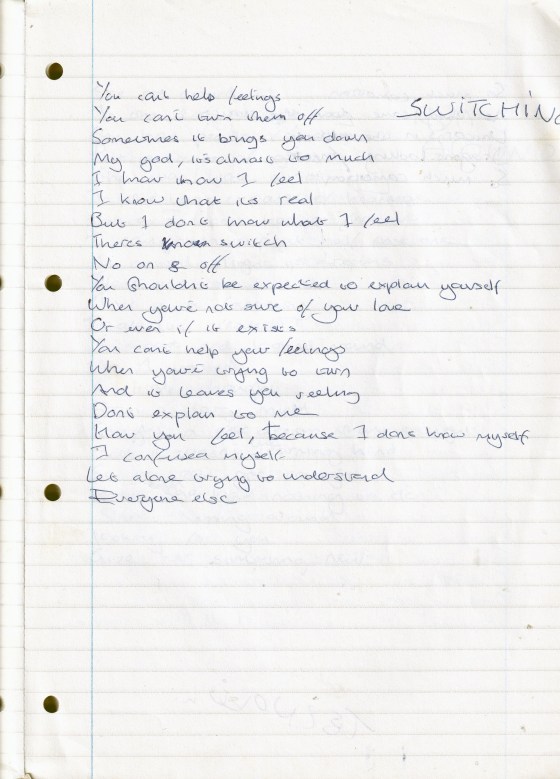 SWITCHING
You cant help feelings
You can't turn them off
Sometimes it brings you down
My god, its almost to much
I know I feel
I know that its real
But I dont know what I feel
Theres switch
No on & off
You Shouldnt be expected to explain yourself
When you're not sure of your love
Or even if it exists
You cant help your feelings
When you're trying to turn
And it leaves you reeling
Dont explain to me
How you feel, because I dont know myself
I confused myself
Let alone trying to understand
Everyone else